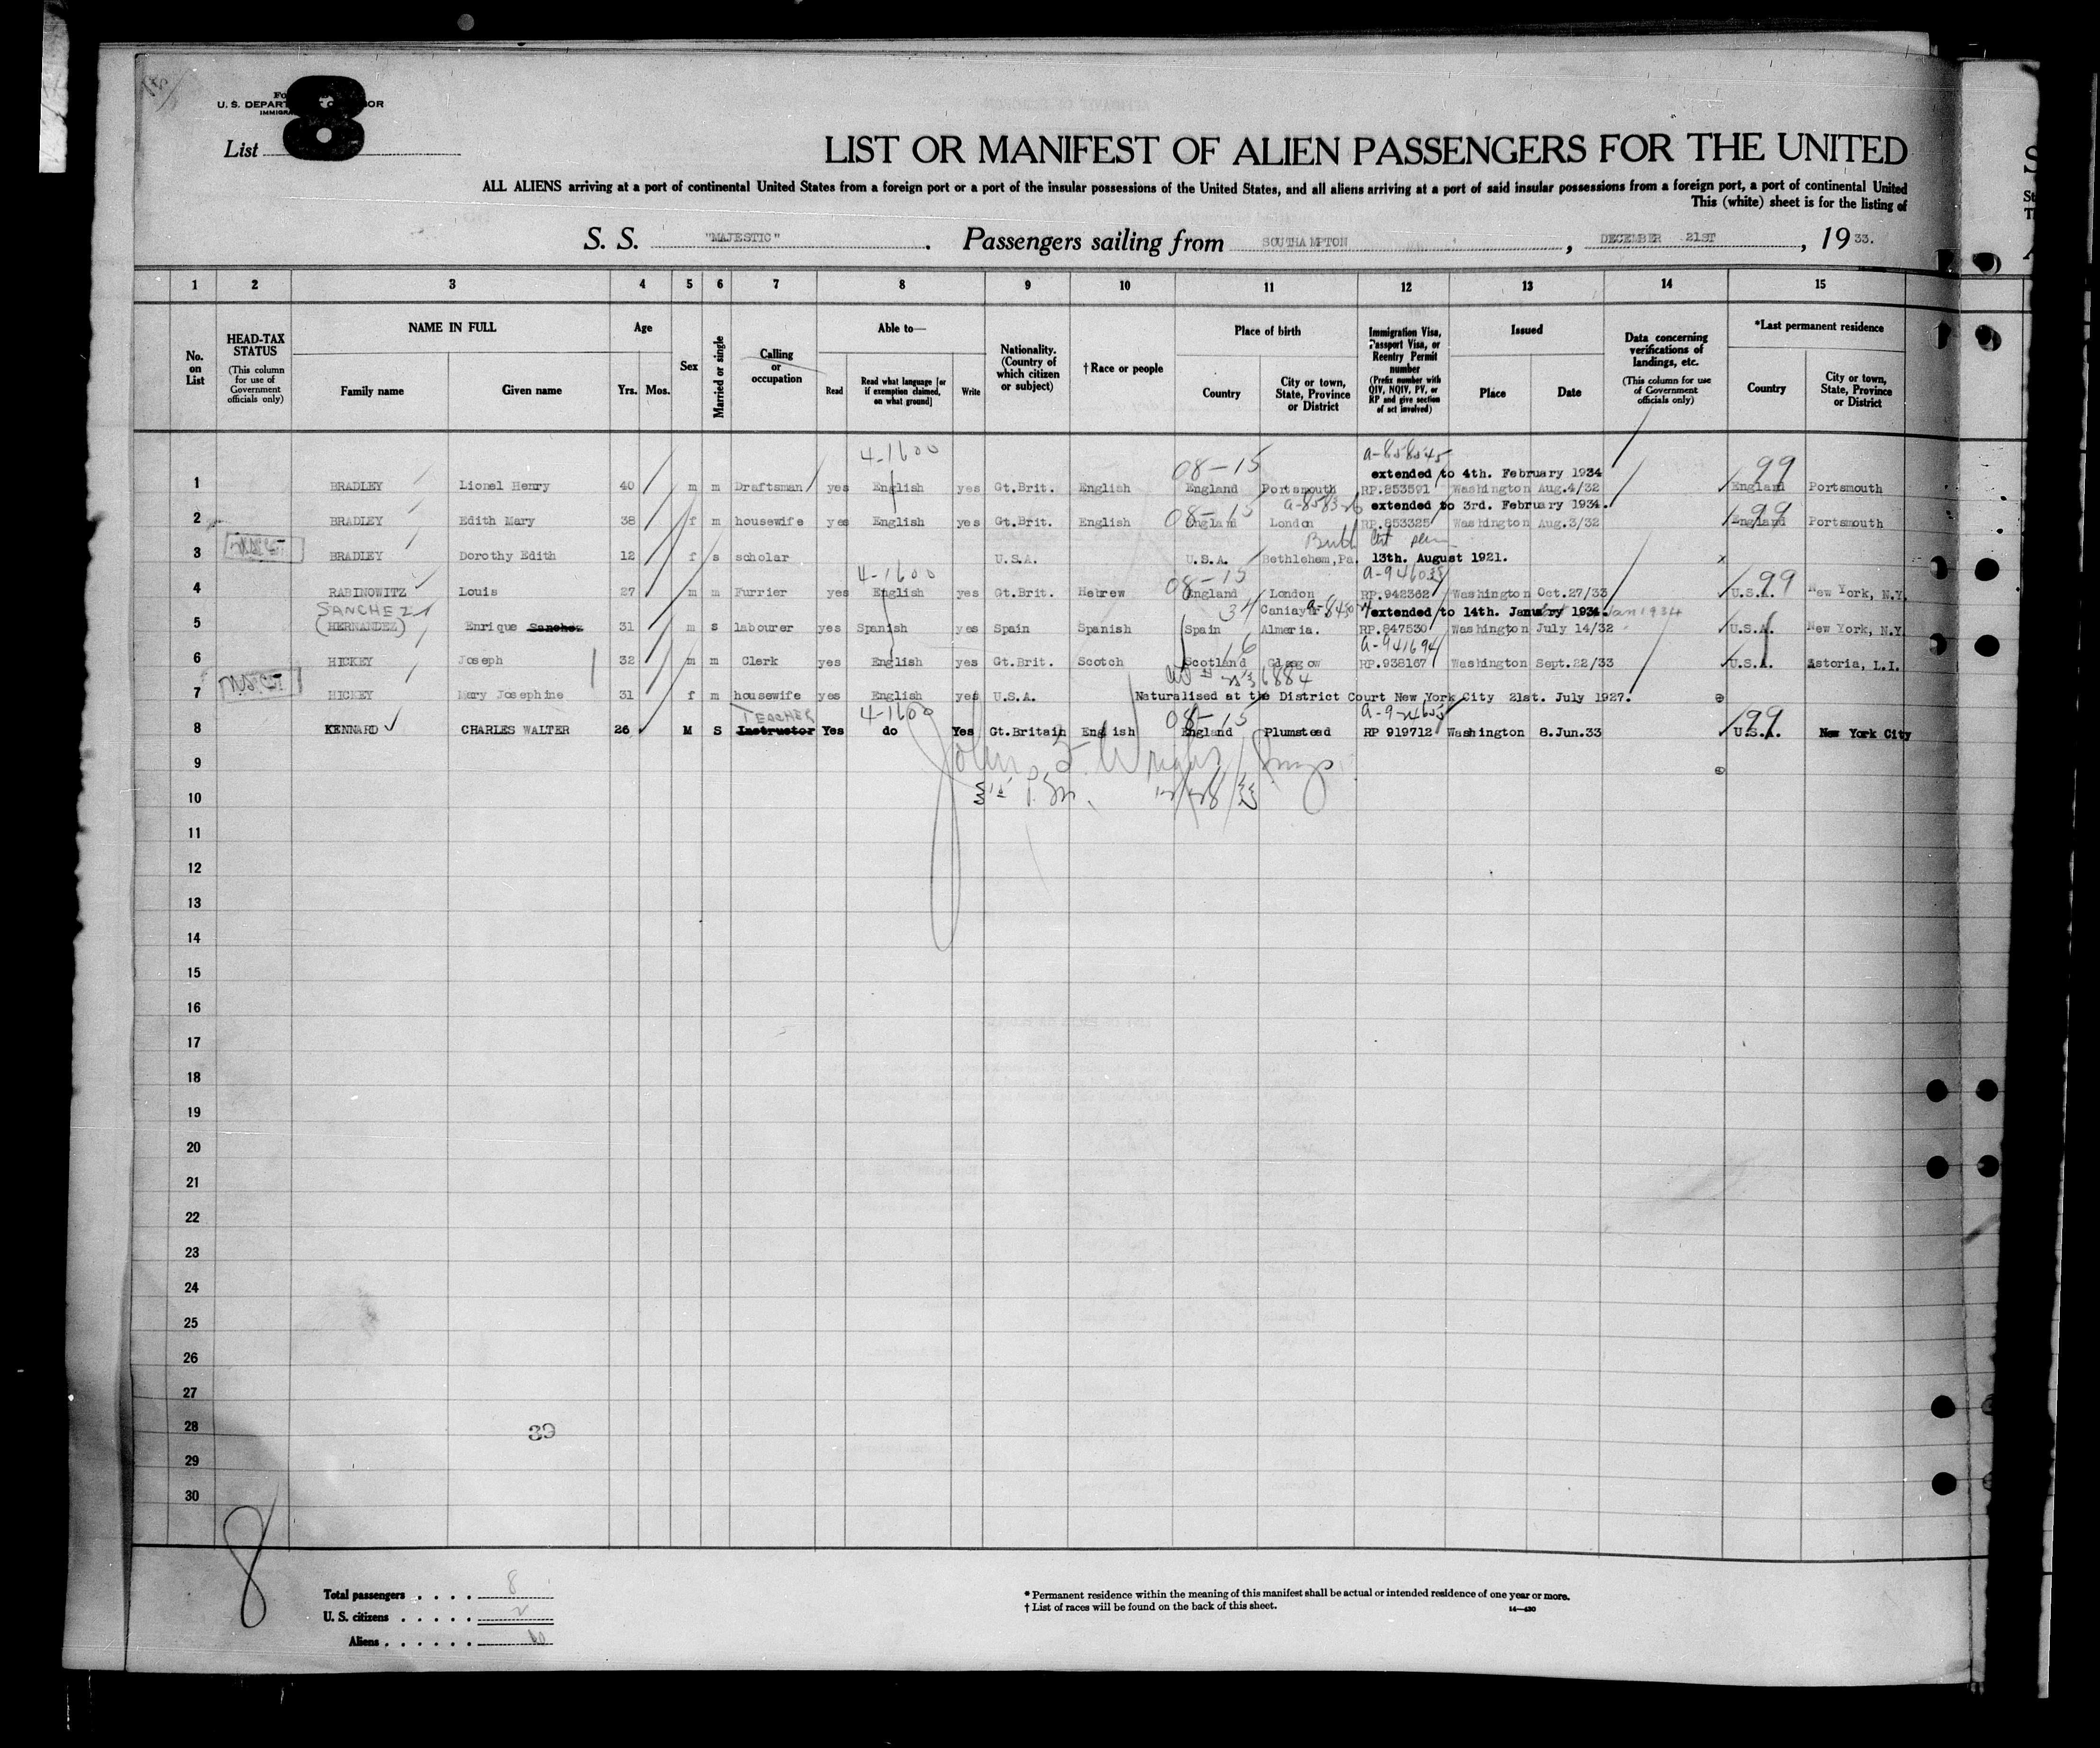 8
U. S. DEPART OR
List
LIST OR MANIFEST OF ALIEN PASSENGERS FOR THE UNITED
ALL ALIENS arriving at a port of continental United States from a foreign port or a port of the insular possessions of the United States, and all aliens arriving at a port of said insular possessions from a foreign port, a port of continental United
This (white) sheet is for the listing of
S. S. "MAJESTIC". Passengers sailing from SOUTHAMPTON, DECEMBER 21ST, 1933.
1 2 3 4 5 6 7 8 9 10 11 12 13 14 15
No. on List
HEAD-TAX STATUS (This column for use of Government officials only)
NAME IN FULL Family name Given name
Age Yrs. Mos.
Sex
Married or single
Calling or occupation
Able to— Read Read what language [or if exemption claimed, on what ground] Write
Nationality. (Country of which citizen or subject)
† Race or people
Place of birth Country City or town, State, Province or District
Immigration Visa, Passport Visa, or Reentry Permit number (Prefix number with QIV, NQIV, PV, or RP and give section of act involved)
Issued Place Date
Data concerning verifications of landings, etc. (This column for use of Government officials only)
*Last permanent residence Country City or town, State, Province or District
4-1600 08-15 a-858545 extended to 4th. February 1934 99
1 BRADLEY Lionel Henry 40 m m Draftsman yes English yes Gt.Brit. English England Portsmouth RP.853591 Washington Aug.4/32 England Portsmouth
08-15 extended to 3rd. February 1934. 99
2 BRADLEY Edith Mary 38 f m housewife yes English yes Gt.Brit. English England London RP.853325 Washington Aug.3/32 England Portsmouth
3 BRADLEY Dorothy Edith 12 f s scholar U.S.A. U.S.A. Bethlehem,Pa. 13th. August 1921. x
4-1600 08-15 99
4 RABINOWITZ Louis 27 m m Furrier yes English yes Gt.Brit. Hebrew England London RP.942362 Washington Oct.27/33 U.S.A. New York, N.Y.
SANCHEZ 34 extended to 14th. January 1934. Jan 1934
5 (HERNANDEZ) Enrique Sanchez 31 m s labourer yes Spanish yes Spain Spanish Spain Almeria. RP.847530 Washington July 14/32 U.S.A. New York, N.Y.
16 a-941694
6 HICKEY Joseph 32 m m Clerk yes English yes Gt.Brit. Scotch Scotland Glasgow RP.938167 Washington Sept.22/33 U.S.A. Astoria, L.I.
7 HICKEY Mary Josephine 31 f m housewife yes English yes U.S.A. Naturalised at the District Court New York City 21st. July 1927.
TEACHER 4-1600 08-15 99
8 KENNARD CHARLES WALTER 26 M S Instructor Yes do Yes Gt.Britain English England Plumstead RP 919712 Washington 8.Jun.33 U.S.A. New York City
9
10
11
12
13
14
15
16
17
18
19
20
21
22
23
24
25
26
27
28 39
29
30
8
Total passengers . . . . 8
U. S. citizens . . . . . 2
Aliens . . . . . .
* Permanent residence within the meaning of this manifest shall be actual or intended residence of one year or more.
† List of races will be found on the back of this sheet.
14—430